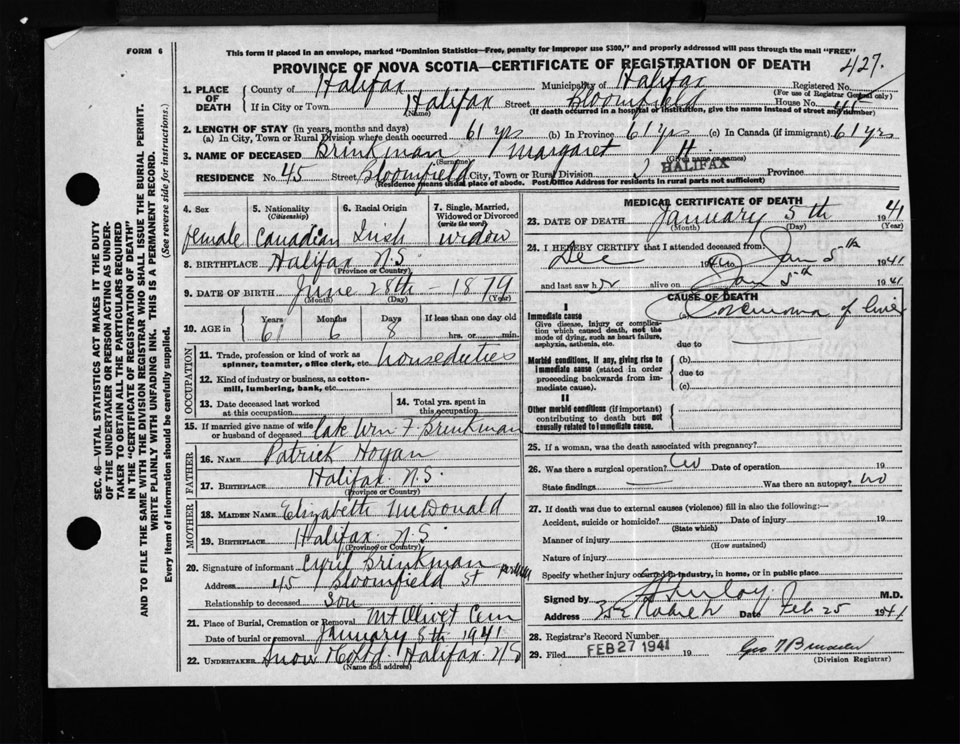 FORM 6
This form if placed in an envelope, marked "Dominion Statistics—Free, penalty for improper use $300," and properly addressed will pass through the mail "FREE"
PROVINCE OF NOVA SCOTIA—CERTIFICATE OF REGISTRATION OF DEATH
427.
1. PLACE OF DEATH
County of Halifax Municipality of Halifax Registered No.
(For use of Registrar General only)
If in City or Town Halifax Street Bloomfield House No. 45
(Name) (If death occurred in a hospital or institution, give name instead of street and number)
2. LENGTH OF STAY (in years, months and days)
(a) In City, Town or Rural Division where death occurred 61 yrs (b) In Province 61 yrs (c) In Canada (if immigrant) 61 yrs
3. NAME OF DECEASED Brinkman Margaret H.
(Surname) (Given name or names)
RESIDENCE No. 45 Street Bloomfield City, Town or Rural Division HALIFAX Province
(Residence means usual place of abode. Post Office Address for residents in rural parts not sufficient)
4. Sex
female
5. Nationality
(Citizenship)
Canadian
6. Racial Origin
Irish
7. Single, Married, Widowed or Divorced
(write the word)
widow
8. BIRTHPLACE Halifax N.S.
(Province or Country)
9. DATE OF BIRTH June 28th - 1879
(Month) (Day) (Year)
10. AGE in
Years Months Days If less than one day old
61 6 8 hrs. or min.
OCCUPATION
11. Trade, profession or kind of work as spinner, teamster, office clerk, etc. houseduties
12. Kind of industry or business, as cotton-mill, lumbering, bank, etc.
13. Date deceased last worked at this occupation
14. Total yrs. spent in this occupation
15. If married give name of wife or husband of deceased late Wm F Brinkman
FATHER
16. NAME Patrick Hogan
17. BIRTHPLACE Halifax N.S.
(Province or Country)
MOTHER
18. MAIDEN NAME Elizabeth McDonald
19. BIRTHPLACE Halifax N.S.
(Province or Country)
20. Signature of informant Cyril Brinkman
Address 45 Bloomfield St
Relationship to deceased Son
21. Place of Burial, Cremation or Removal Mt Olivet Cem
Date of burial or removal January 8th 1941
22. UNDERTAKER Snow & Co Ltd. Halifax N.S
(Name and address)
MEDICAL CERTIFICATE OF DEATH
23. DATE OF DEATH January 5th 1941
(Month) (Day) (Year)
24. I HEREBY CERTIFY that I attended deceased from
Dec 1940 to Jan 5th 1941
and last saw her alive on Jan 5th 1941
CAUSE OF DEATH
I
Immediate cause (a) Carcinoma of liver
Give disease, injury or complication which caused death, not the mode of dying, such as heart failure, asphyxia, asthenia, etc.
due to
Morbid conditions, if any, giving rise to immediate cause (stated in order proceeding backwards from immediate cause).
(b)
due to
(c)
II
Other morbid conditions (if important) contributing to death but not causally related to immediate cause.
25. If a woman, was the death associated with pregnancy?
26. Was there a surgical operation? No Date of operation 19
State findings Was there an autopsy? No
27. If death was due to external causes (violence) fill in also the following:—
Accident, suicide or homicide? Date of injury 19
(State which)
Manner of injury
(How sustained)
Nature of injury
Specify whether injury occurred in industry, in home, or in public place
Signed by M.D.
Address Date Feb 25 1941
28. Registrar's Record Number
29. Filed FEB 27 1941 19
(Division Registrar)
SEC. 46—VITAL STATISTICS ACT MAKES IT THE DUTY
OF THE UNDERTAKER OR PERSON ACTING AS UNDER-
TAKER TO OBTAIN ALL THE PARTICULARS REQUIRED
IN THE "CERTIFICATE OF REGISTRATION OF DEATH"
AND TO FILE THE SAME WITH THE DIVISION REGISTRAR WHO SHALL ISSUE THE BURIAL PERMIT.
WRITE PLAINLY WITH UNFADING INK. THIS IS A PERMANENT RECORD.
Every item of information should be carefully supplied. (See reverse side for instructions.)